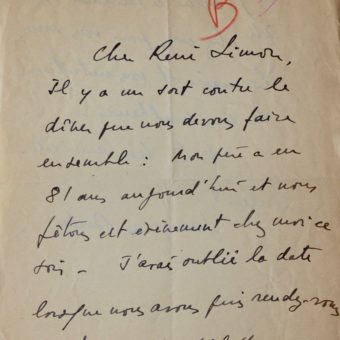 B
Cher René Simon,
Il y a un sort contre le
dîner que nous devons faire
ensemble : Mon père a eu
81 ans aujourd'hui et nous
fêtons cet événement chez moi ce
soir – J'avais oublié la date
lorsque nous avons pris rendez-vous